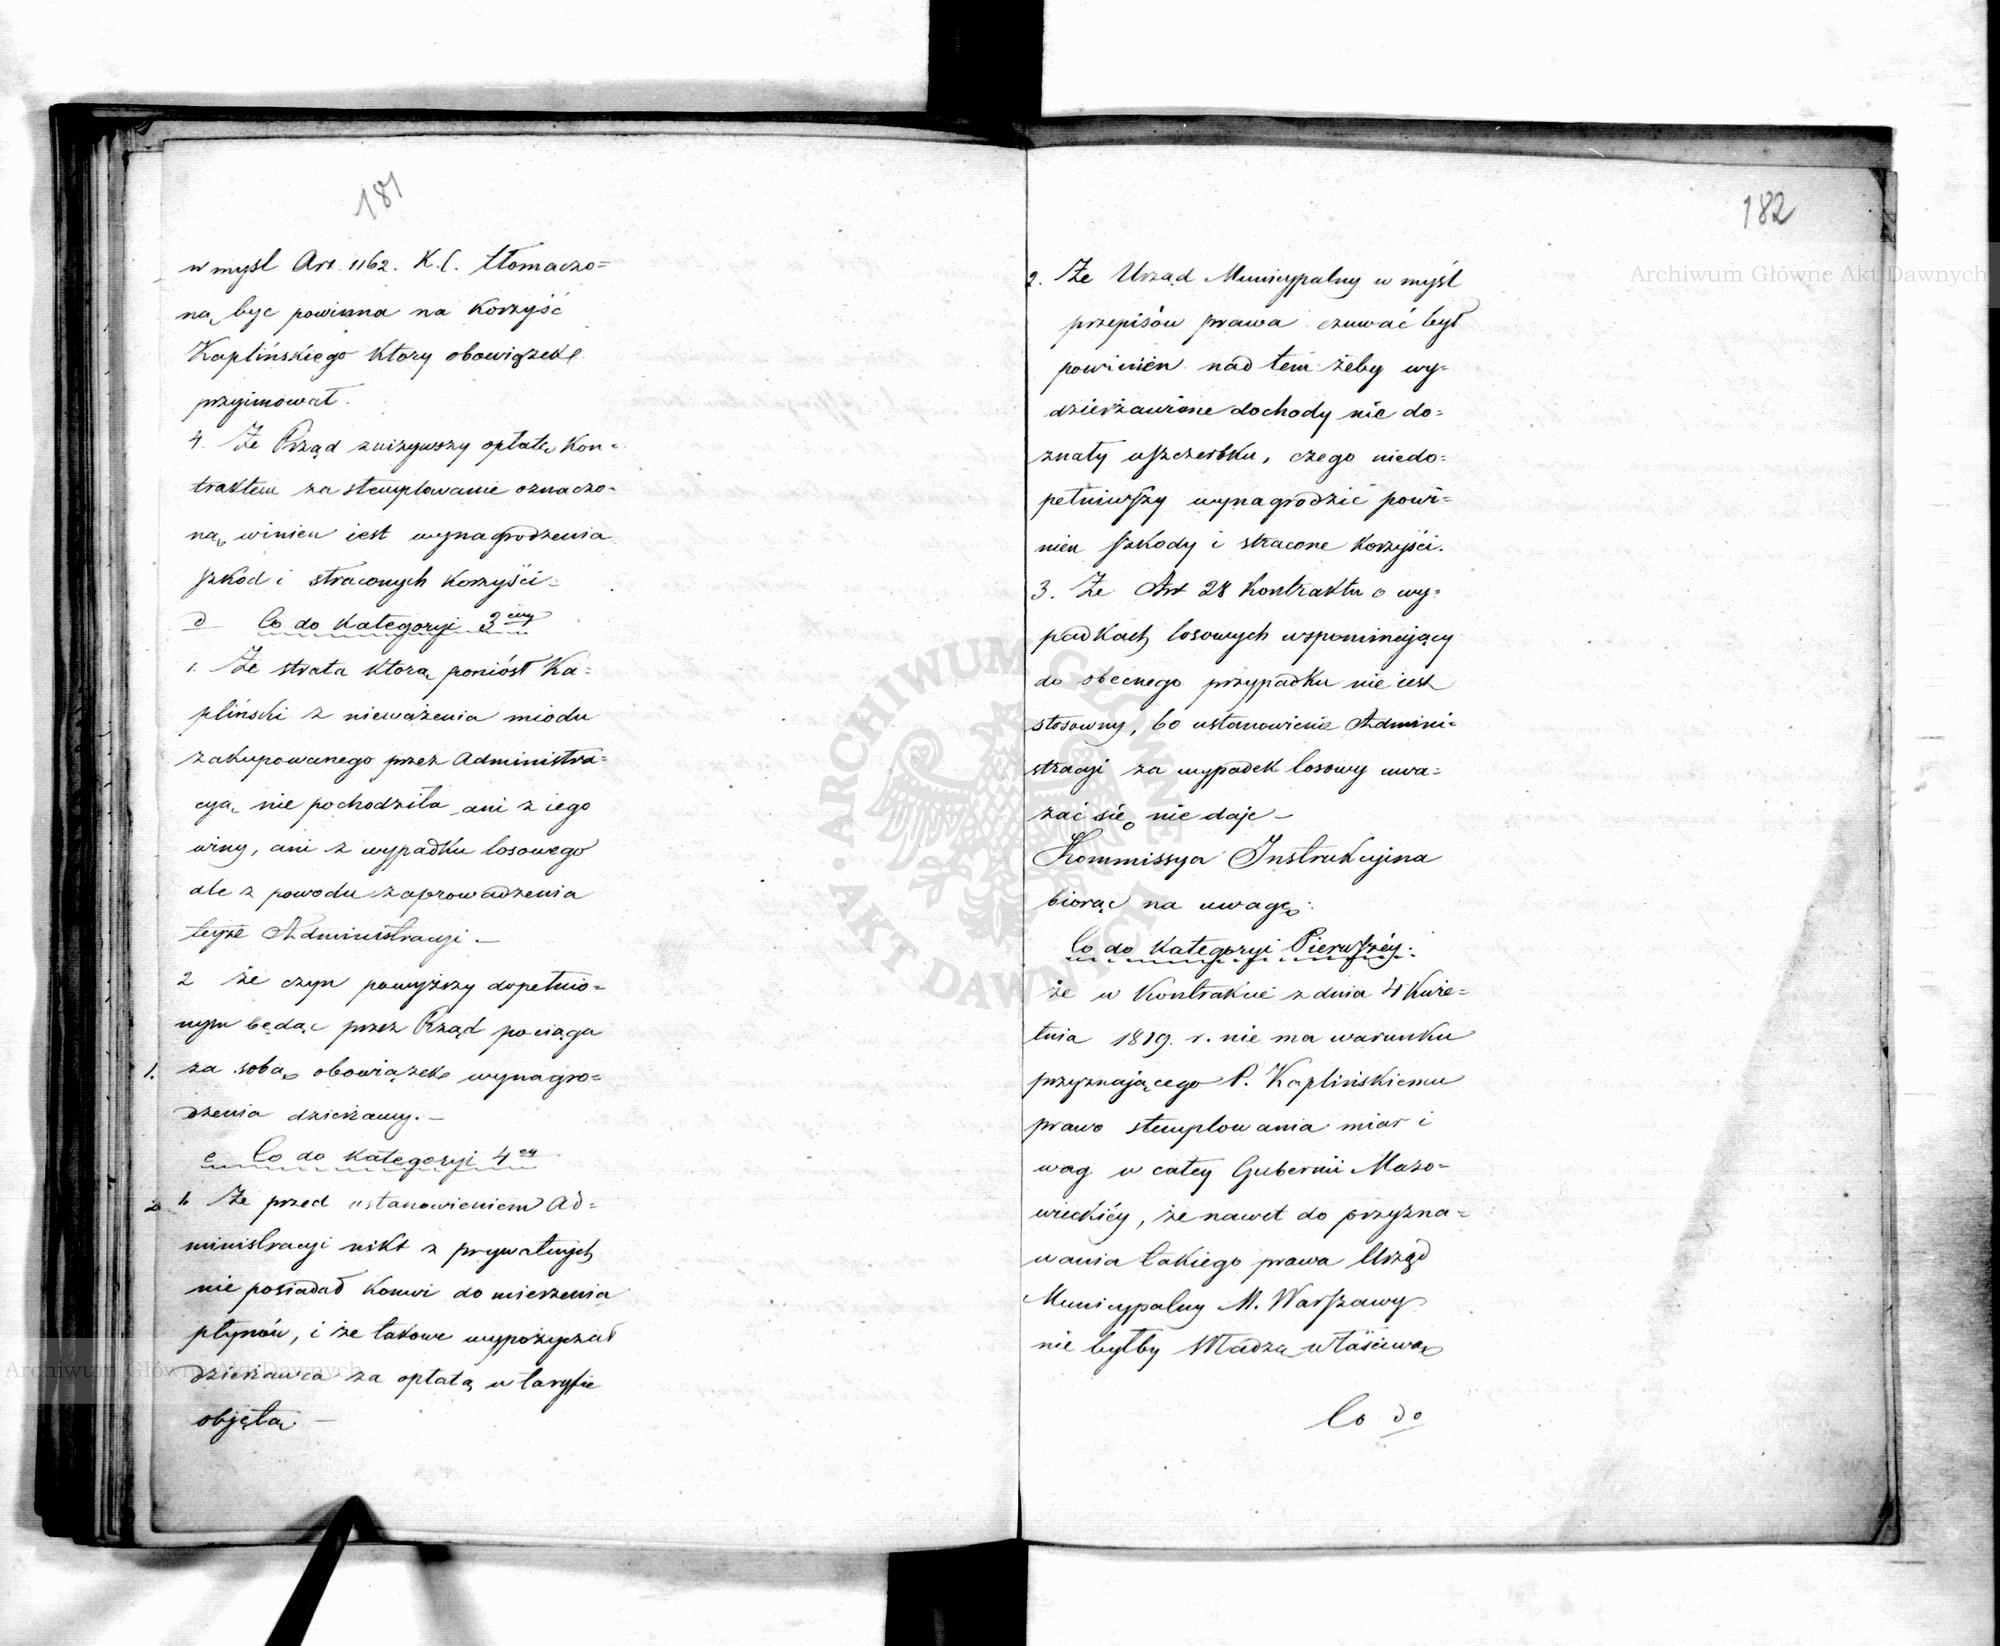 181
w mysl Art. 1162. K.C. tłomaczo=
ną byc powinna na korzyść
Kaplińskiego ktory obowiązek
przyimował.
4. Że Rząd zniżywszy opłatę kon=
traktem za stemplowanie oznaczo=
ną winien iest wynagrodzenia
szkod i straconych korzyści.
d Co do kategoryi 3ciey
1. Że strata ktorą poniósł Ka=
pliński z nieważenia miodu
zakupowanego przez Administra=
cyą nie pochodziła ani z iego
winy, ani z wypadku losowego
ale z powodu zaprowadzenia
teyże Administracyi –
2 że czyn powyższy dopełnio=
nym będąc przez Rząd pociąga
1. za sobą obowiązek wynagro=
dzenia dzierżawy. –
e Co do kategoryi 4ey
2. 1. Że przed ustanowieniem Ad=
ministracyi nikt z prywatnych
nie posiadał konwi do mierzenia
płynów, i że takowe wypożyczał
dzierżawca za opłatą w taryfie
objętą. –
182
2. Że Urząd Municypalny w myśl
przepisów prawa czuwać był
powinien nad tem żeby wy=
dzierżawione dochody nie do=
znały uszczerbku, czego niedo=
pełniwszy wynagrodzić powi=
nien szkody i stracone korzyści.
3. Że Art 28 kontraktu o wy=
padkach losowych wspominaiący
do obecnego przypadku nie iest
stosowny, bo ustanowienie Admini=
stracyi za wypadek losowy uwa=
żać się nie daje –
Kommissya Instrukcyina
biorąc na uwagę:
Co do kategoryi Pierwszéy.
że w Kontrakcie z dnia 4 Kwie=
tnia 1819. r. nie ma warunku
przyznającego P. Kaplińskiemu
prawo stemplowania miar i
wag w całey Gubernii Mazo=
wieckiéy, że nawet do przyzna=
wania takiego prawa Urząd
Municypalny M. Warszawy
nie byłby Władzą właściwą
Co do
Archiwum Główne Akt Dawnych
ARCHIWUM GŁÓWNE AKT DAWNYCH
Archiwum Główne Akt Dawnych